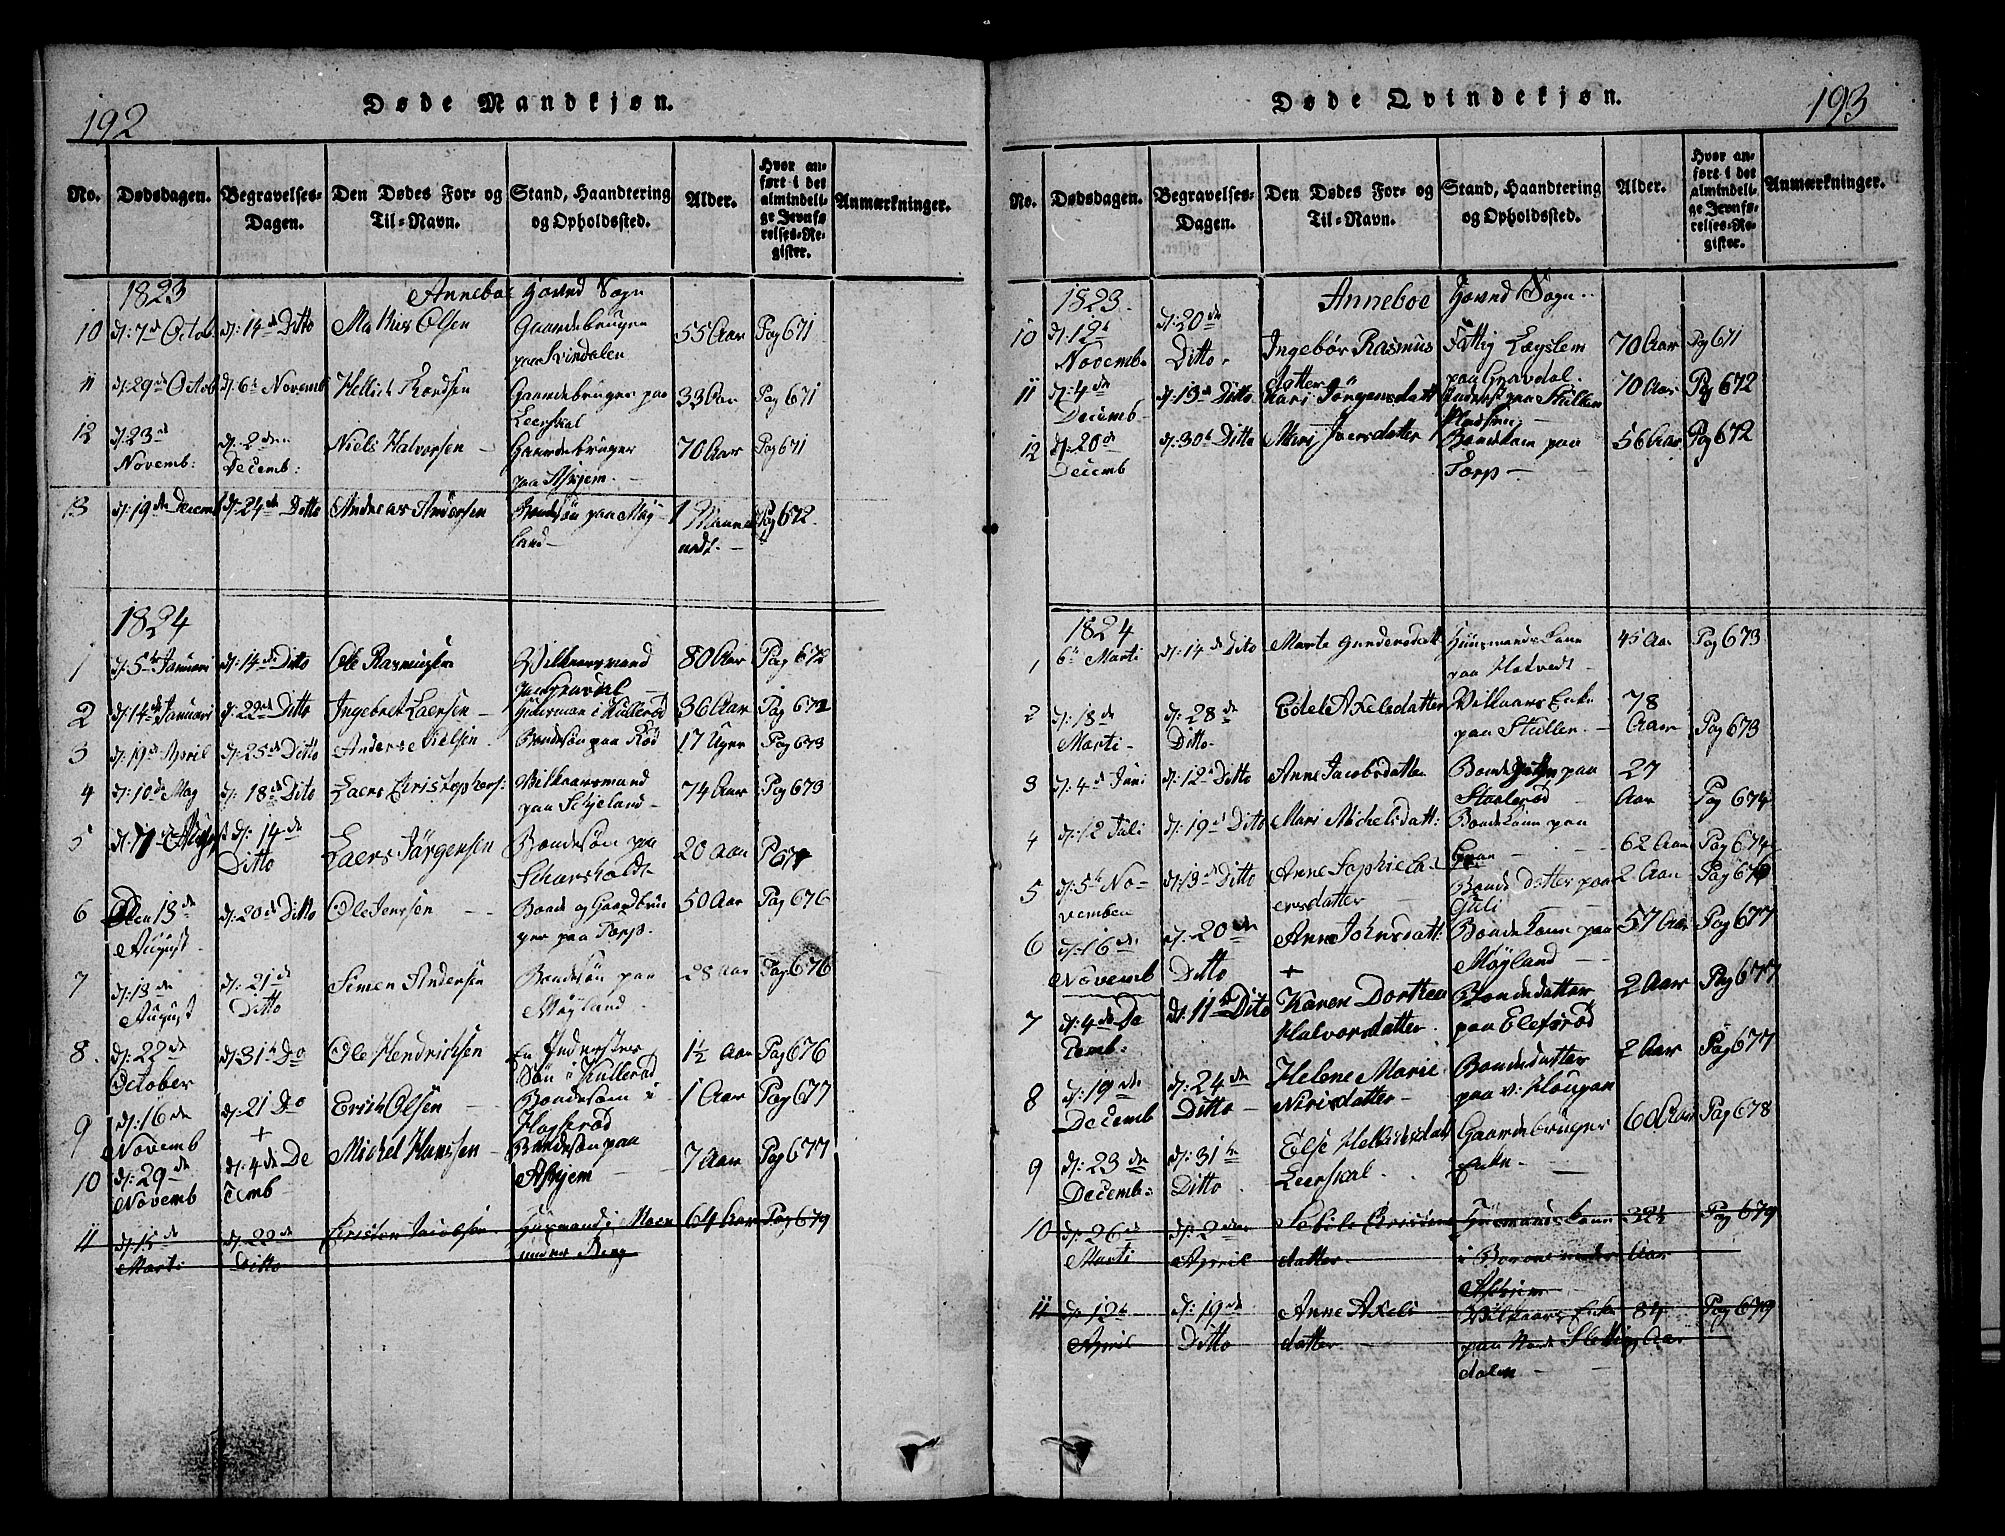 192
Døde Mandkjøn.
No. Dødsdagen. Begravelses-Dagen. Den Dødes For- og Til-Navn. Stand, Haandtering og Opholdssted. Alder. Hvor anført i det almindelige Jevnførelses-Register. Anmærkninger.
1823 Anneboe Hovnd Sogn
10 d: 7de Octob. d: 14de Ditto Mathis Olsen Gaardebruger paa 55 Aar Pag 671
11 d: 29de Octob d: 6te Novemb Hellick Gaardebruger paa Leerskal 33 Aar Pag 671
12 d: 23de Novemb: d: 2den Decemb: Niels Halvorsen – Gaardebruger paa Askjem. – 70 Aar Pag 671
13 d: 19de Decemb d: 24de Ditto Andreas Andersen Bondesøn paa Møyland – 1 Pag 672.
1824
1 d: 5te Januari d: 14de Ditto Ole Rasmusen Vilkaarsmand paa Gravdal – 80 Aar Pag 672
2 d: 14de Januari d: 22de Ditto Ingebret Laersen – i Kullerød 36 Aar Pag 672
3 d: 19de April d: 25de Ditto Anders Nielsen Bondesøn paa Rød 17 Uger Pag 673
4 d: 10de May d: 18de Ditto Laers Christophers: Vilkaarsmand paa Skjeland – 74 Aar Pag 673
5 August d: 14de Ditto Laers Jørgensen Bondesøn paa 20 Aar Pag 674
6 Den 13de August d: 20de Ditto Ole Jensen – – Bonde og Gaardbruger paa Torp. 50 Aar Pag 676
7 d: 13de August d: 21de Ditto Simen Andersen Bondesøn paa Møyland – 28 Aar Pag 676
8. d: 22de October d: 31te Do Ole Hendrichsen En Inderstes Søn i Kullerød 1½ Aar Pag 676
9 d: 16de Novemb d: 21 Do Erich Olsen – Bondesøn i 1 Aar Pag 677
10 d: 29de Novemb + d: 4de Decemb – Michel Hansen – Bondesøn paa Askjem – 7 Aar Pag 677
11 d: 15de Marti d: 22de Ditto Cristen Jacobsen Husmand i Moen under Berg 64 Aar Pag 679
193
Døde Qvindekjøn.
No. Dødsdagen. Begravelses-Dagen. Den Dødes For- og Til-Navn. Stand, Haandtering og Opholdssted. Alder. Hvor anført i det almindelige Jevnførelses-Register. Anmærkninger.
1823. Anneboe Hovnd Sogn.
10 d: 12te Novemb. d: 20de Ditto. Ingebør Rasmus datter Fattig Lægslem paa Gravdal. 70 Aar Pag 671
11 d: 4de Decemb d: 13de Ditto Kari Jörgensdatt Inderst paa 70 Aar Pag 672
12 d: 20de Decemb d: 30te Ditto Mari Iversdatter Bondekone paa Torp – 56 Aar Pag 672
1824
1 6te Marti d: 14de Ditto Marte Gundersdatt Huusmands Kone paa Hotvedt – 45 Aar Pag 673
2 d: 18de Marti – d: 28de Ditto – Edel Axelsdatter Vilkaars Enke paa Stullen – 78 Aar Pag 673
3 d: 4de Juni d: 12te Ditto Anne Jacobsdatter Bonde paa 27 Aar Pag 674
4 d: 12 Juli d: 19de Ditto Mari Michelsdatt: Bonde Kone paa 62 Aar Pag 674
5 d: 5te November d: 13de Ditto Anne Sophie Laersdatter – Bonde datter paa Juli – 2 Aar Pag 676
6 d: 16de Novemb d: 20de Ditto Anne Johnsdatt: Bonde Kone paa Møyland – – 57 Aar Pag 677
7 d: 4de Decemb. d: 11te Ditto + Karen Dorthea Halvorsdatter. Bondedatter paa Elefsrød 2 Aar Pag 677
8 d: 19de Decemb d: 24de Ditto – Helene Marie Nirisdatter – Bondedatter paa v: Hougan 2 Aar Pag 677
9 d: 23de Decemb: d: 31te Ditto. Else Hellichsdat Leerskal. Gaardebruger Enke – 60 Aar Pag 678
10 d: 26de Marti d: 2den April datter Husmands Kone i under Askjem 32½ Aar Pag 679
11 d: 12te April d: 19de Ditto Anne Axelsdatter – Vilkaars Enke paa Nordre Slettingdalen – 84 Aar Pag 679